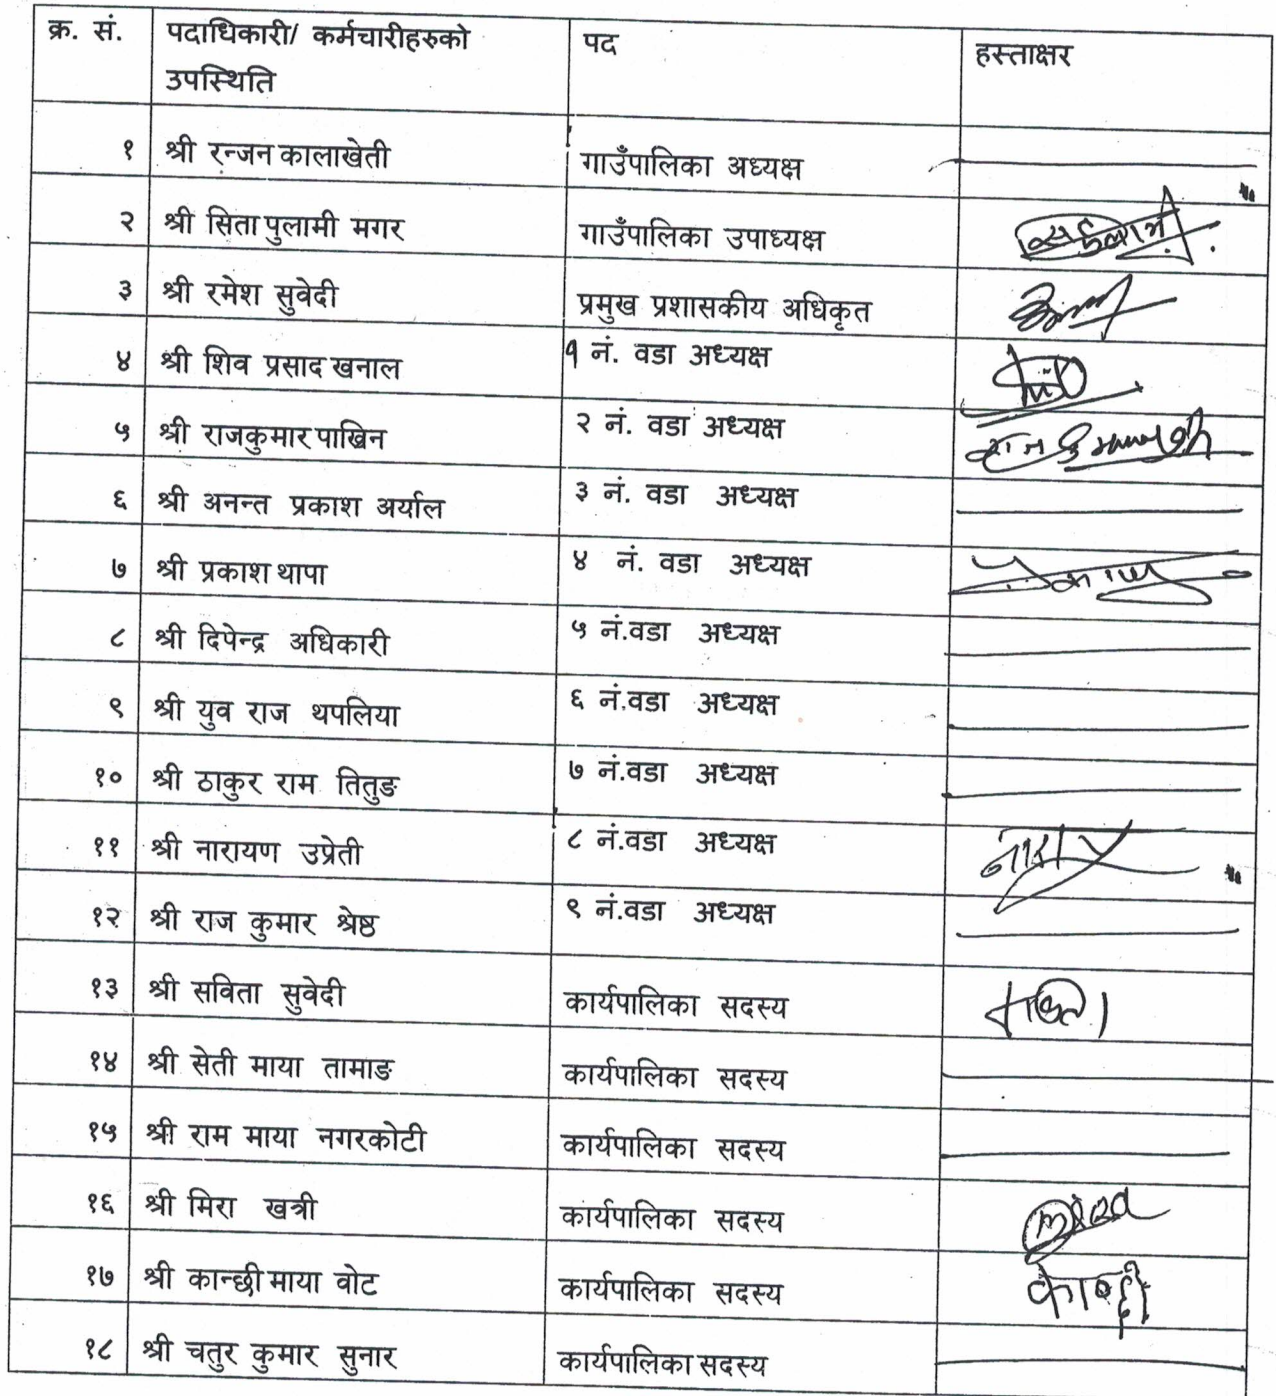 क्र. सं. पदाधिकारी/ कर्मचारीहरुको पद हस्ताक्षर
उपस्थिति
१ श्री रन्जन कालाखेती गाउँपालिका अध्यक्ष
२ श्री सिता पुलामी मगर गाउँपालिका उपाध्यक्ष
३ श्री रमेश सुवेदी प्रमुख प्रशासकीय अधिकृत
४ श्री शिव प्रसाद खनाल १ नं. वडा अध्यक्ष
५ श्री राजकुमार पाख्रिन २ नं. वडा अध्यक्ष
६ श्री अनन्त प्रकाश अर्याल ३ नं. वडा अध्यक्ष
७ श्री प्रकाश थापा ४ नं. वडा अध्यक्ष
८ श्री दिपेन्द्र अधिकारी ५ नं.वडा अध्यक्ष
९ श्री युव राज थपलिया ६ नं.वडा अध्यक्ष
१० श्री ठाकुर राम तितुङ ७ नं.वडा अध्यक्ष
११ श्री नारायण उप्रेती ८ नं.वडा अध्यक्ष
१२ श्री राज कुमार श्रेष्ठ ९ नं.वडा अध्यक्ष
१३ श्री सविता सुवेदी कार्यपालिका सदस्य
१४ श्री सेती माया तामाङ कार्यपालिका सदस्य
१५ श्री राम माया नगरकोटी कार्यपालिका सदस्य
१६ श्री मिरा खत्री कार्यपालिका सदस्य
१७ श्री कान्छी माया वोट कार्यपालिका सदस्य
१८ श्री चतुर कुमार सुनार कार्यपालिका सदस्य